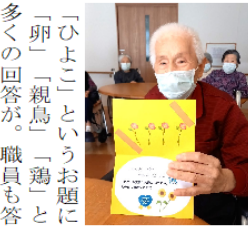 「ひよこ」というお題に
「卵」「親鳥」「鶏」と
多くの回答が。職員も答